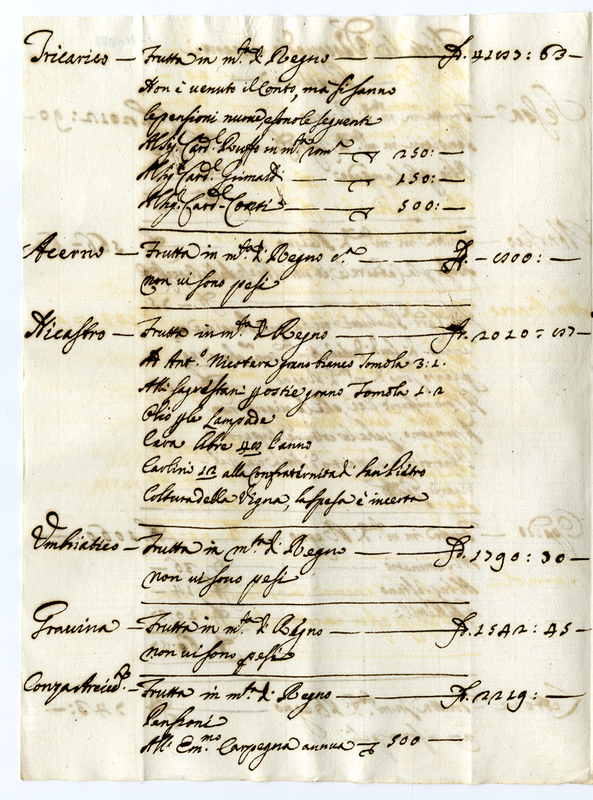 Tricarico — Frutta in m.ta di Regno — — D. 4183: 63 —
Non è venuto il Conto, ma si sanno
le pensioni, che sono le seguenti
All' Sig.r Card.l Ruffo in m.ta rom.a — 250: —
All' Sig.r Card.l Grimaldi — 150: —
All' Sig.r Card.l Conti — 500: —
Acerno — Frutta in m.ta di Regno — D. — 800: —
non vi sono pesi
Nicastro — Frutta in m.ta di Regno — D. 2020:
Ad Ant.o Nicotera grano bianco Tomola 3:1.
Alli sagrestani p ostie grano Tomola 1.2
Olio p le Lampade
Cava libre l'anno
Carlini alla Confraternita di San Pietro
Coltura della Vigna, la spesa è incerta
Umbriatico — Frutta in m.ta di Regno — D. 1790: 30 —
non vi sono pesi
Gravina — Frutta in m.ta di Regno — D. 1542: 45 —
non vi sono pesi
Conza Arcivo. — Frutta in m.ta di Regno — D. 2219: —
Pensioni
All' Em.mo Carpegna annua — 500 —